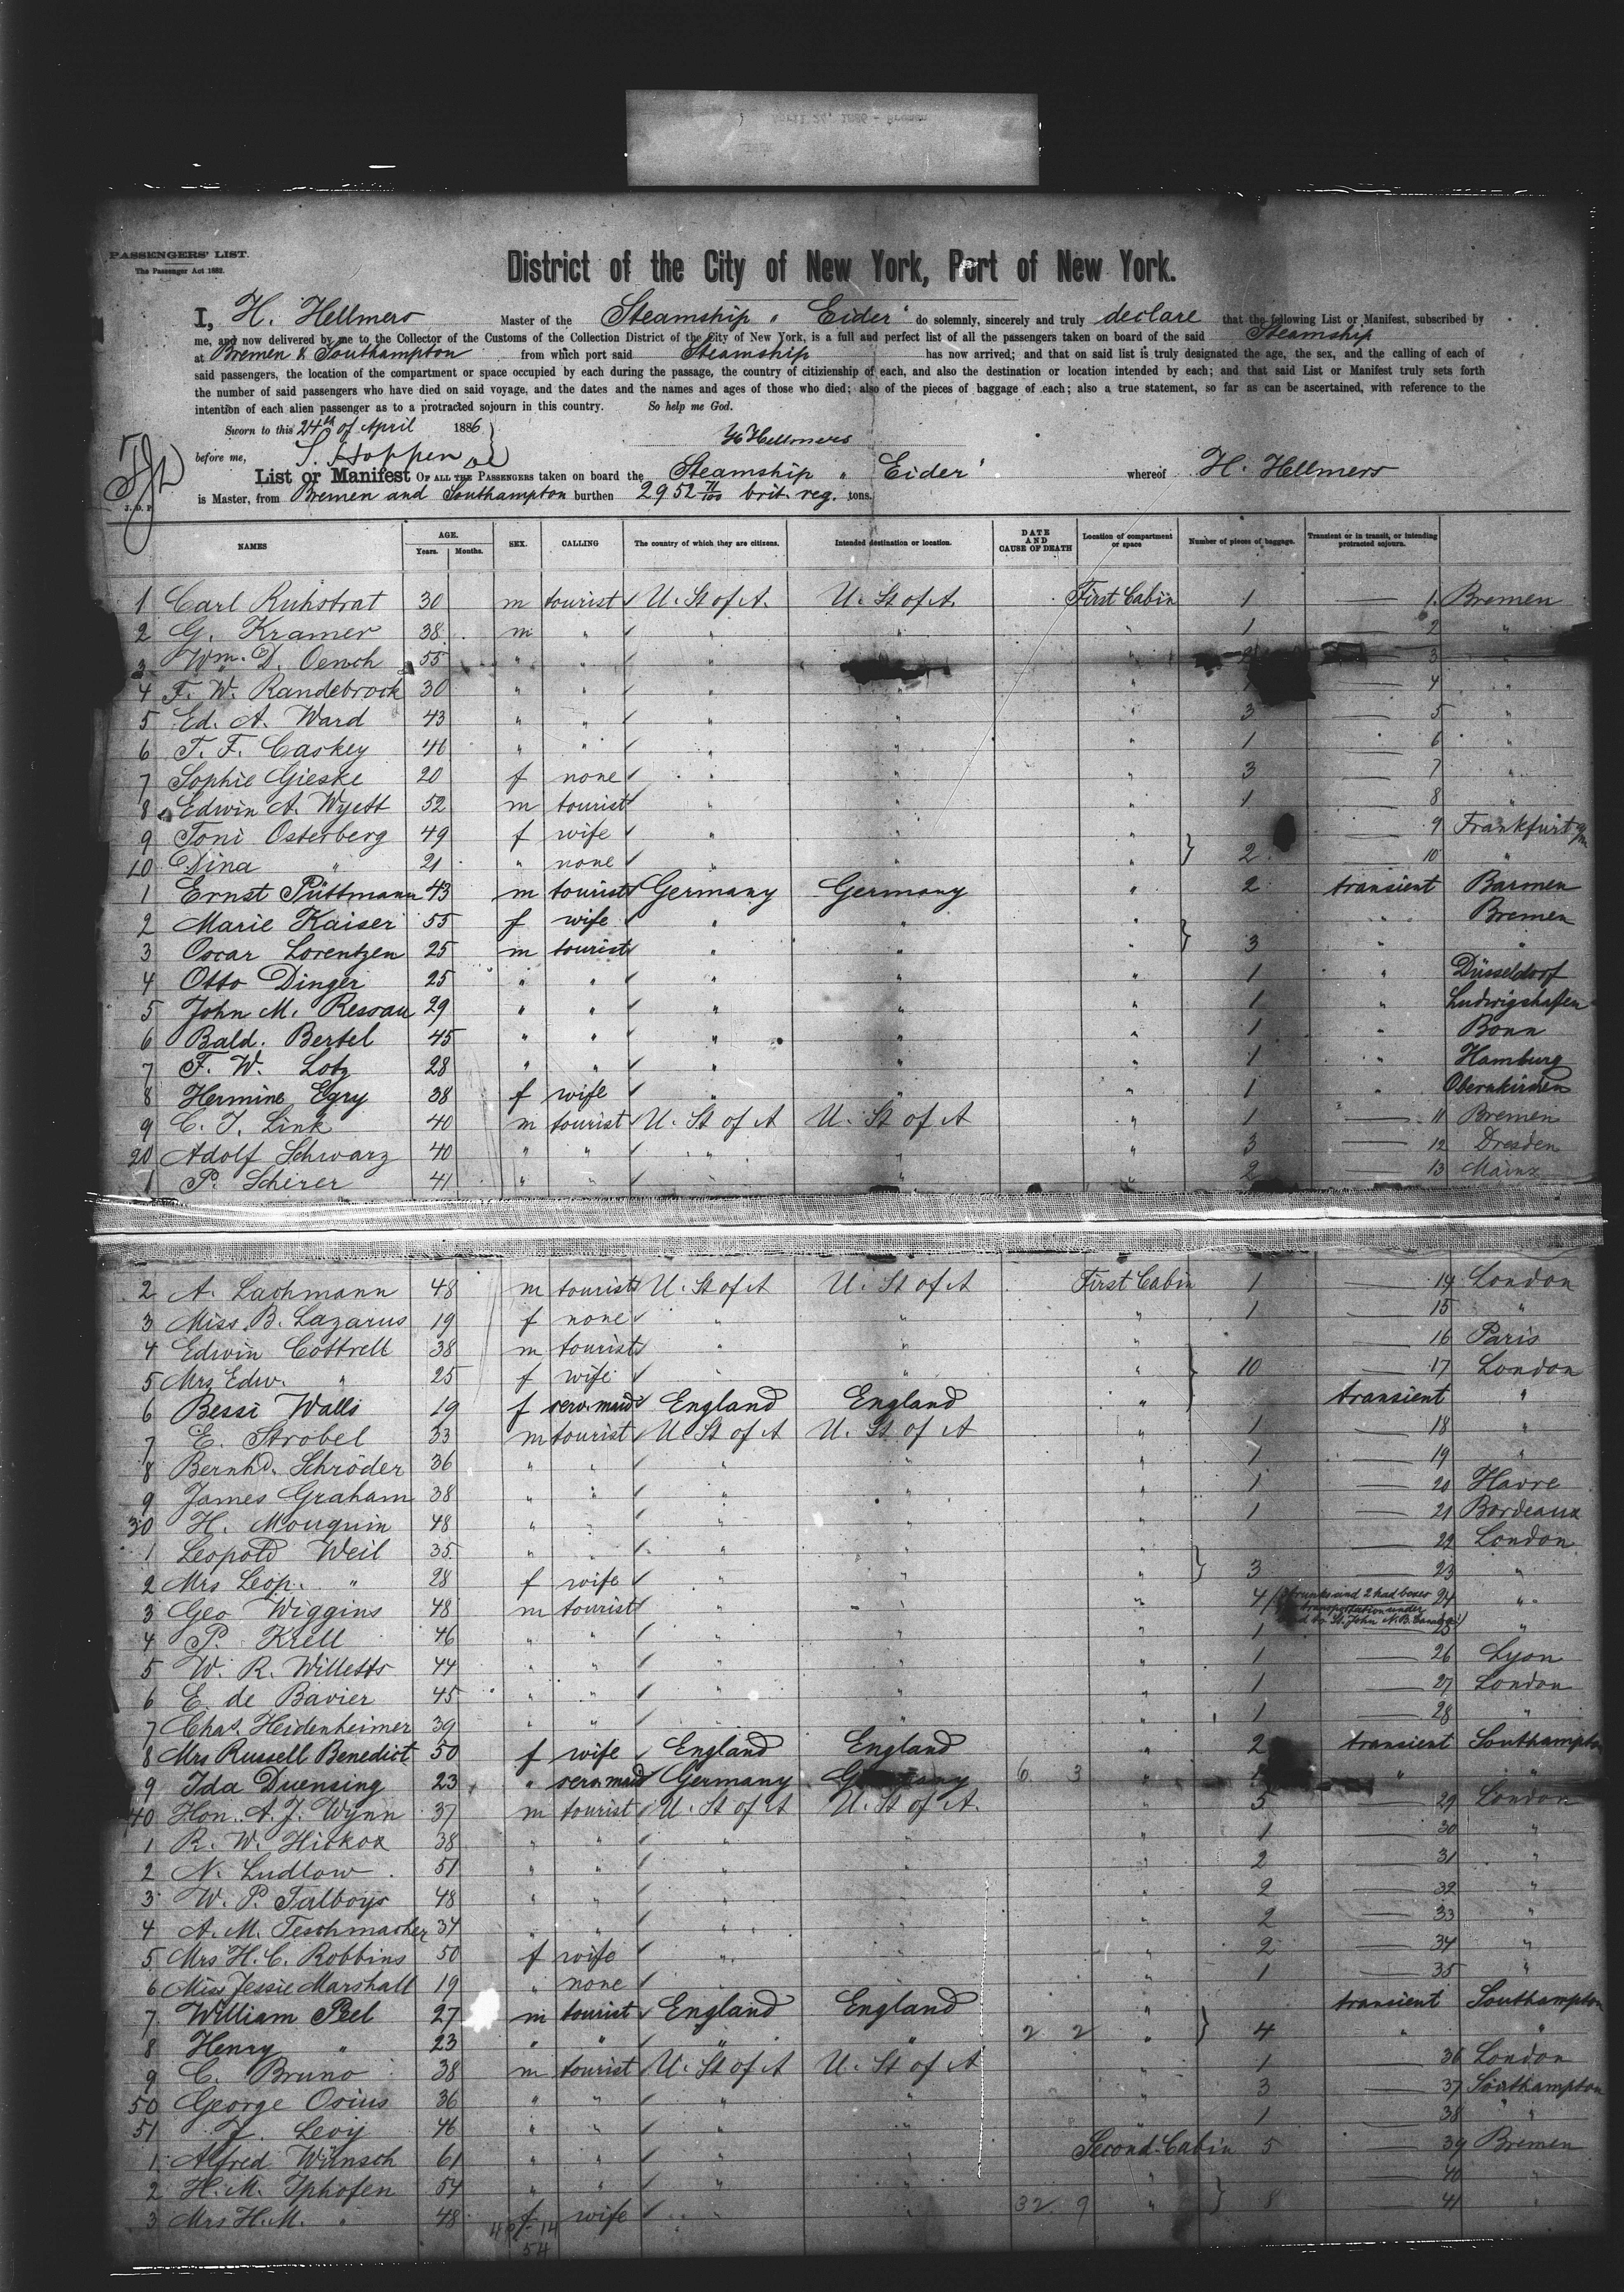 April 24, 1886 - Bremen
PASSENGERS' LIST.
The Passenger Act 1882.
District of the City of New York, Port of New York.
I, H. Hellmers Master of the Steamship " Eider" do solemnly, sincerely and truly declare that the following List or Manifest, subscribed by
me, and now delivered by me to the Collector of the Customs of the Collection District of the City of New York, is a full and perfect list of all the passengers taken on board of the said Steamship
at Bremen & Southampton from which port said Steamship has now arrived; and that on said list is truly designated the age, the sex, and the calling of each of
said passengers, the location of the compartment or space occupied by each during the passage, the country of citizenship of each, and also the destination or location intended by each; and that said List or Manifest truly sets forth
the number of said passengers who have died on said voyage, and the dates and the names and ages of those who died; also of the pieces of baggage of each; also a true statement, so far as can be ascertained, with reference to the
intention of each alien passenger as to a protracted sojourn in this country. So help me God.
Sworn to this 24th of April 1886
H Hellmers
before me,
List or Manifest OF ALL THE PASSENGERS taken on board the Steamship " Eider" whereof H. Hellmers
is Master, from Bremen and Southampton burthen 2952 71/100 brit. reg. tons.
NAMES AGE. Years. Months. SEX. CALLING The country of which they are citizens. Intended destination or location. DATE AND CAUSE OF DEATH Location of compartment or space Number of pieces of baggage. Transient or in transit, or intending protracted sojourn.
1 Carl Ruhstrat 30 m tourist U. St of A. U. St of A. First Cabin 1 — 1. Bremen
2 G. Kramer 38 m " " " " 1 — 2 "
3 Wm. D. Oench 55 " " " " 2 — 3
4 F. W. Randebrock 30 " " " " " — 4 "
5 Ed. A. Ward 43 " " " " " 3 — 5 "
6 T. F. Caskey 46 " " " " " 1 — 6 "
7 Sophie Gieske 20 f none " " " 3 — 7 "
8 Edwin A. Wyett 52 m tourist " " " 1 — 8 "
9 Toni Osterberg 49 f wife " " " — 9 Frankfurt a/m
10 Dina " 21 " none " " " 2 — 10 "
1 Ernst Püttmann 43 m tourist Germany Germany " 2 transient Barmen
2 Marie Kaiser 55 f wife " " " " Bremen
3 Oscar Lorentzen 25 m tourist " " " 3 " "
4 Otto Dinger 25 " " " " " 1 " Düsseldorf
5 John M. Ressau 29 " " " " " 1 " Ludwigshafen
6 Bald. Bertel 45 " " " " " 1 " Bonn
7 F. W. Lotz 28 " " " " " 1 " Hamburg
8 Hermine Egry 38 f wife " " " 1 " Obernkirchen
9 C. J. Link 40 m tourist U. St of A U. St of A " 1 — 11 Bremen
20 Adolf Schwarz 40 " " " " " 3 — 12 Dresden
1 P. Scherer 41 " " " " " 2 — 13 Mainz
2 A. Lachmann 48 m tourist U. St of A U. St of A First Cabin 1 — 14 London
3 Miss B. Lazarus 19 f none " " " 1 — 15 "
4 Edwin Cottrell 38 m tourist " " " — 16 Paris
5 Mrs Edw. " 25 f wife " " " 10 — 17 London
6 Bessi Walls 19 f serv. maid England England " transient "
7 E. Strobel 33 m tourist U. St of A U. St of A " 1 — 18 "
8 Bernhd. Schröder 36 " " " " " 1 — 19 "
9 James Graham 38 " " " " " 1 — 20 Havre
30 H. Mouquin 48 " " " " " 1 — 21 Bordeaux
1 Leopold Weil 35 " " " " " 22 London
2 Mrs Leop. " 28 f wife " " " 3 23 "
3 Geo Wiggins 48 m tourist " " " 4 24 "
4 P. Krell 46 " " " " " 1 25 "
5 W. R. Willetts 44 " " " " " 1 — 26 Lyon
6 E. de Bavier 45 " " " " " 1 — 27 London
7 Chas. Heidenheimer 39 " " " " " 1 — 28 "
8 Mrs Russell Benedict 50 f wife England England " 2 transient Southampton
9 Ida Duensing 23 " serv. maid Germany Germany 6 3 " " "
40 Hon. A. J. Wynn 37 m tourist U. St of A U. St of A. " 5 — 29 London
1 R. W. Hickox 38 " " " " " 1 — 30 "
2 N. Ludlow 51 " " " " " 2 — 31 "
3 W. P. Talboys 48 " " " " " 2 — 32 "
4 A. M. Teschmacher 34 " " " " " 2 — 33 "
5 Mrs H. C. Robbins 50 f wife " " " 2 — 34 "
6 Miss Jessie Marshall 19 " none " " " 1 — 35 "
7 William Peel 27 m tourist England England " transient Southampton
8 Henry " 23 " " " " 2 2 " 4 " "
9 C. Bruno 38 m tourist U. St of A U. St of A " 1 — 36 London
50 George Osius 36 " " " " " 3 — 37 Southampton
51 J. Levy 46 " " " " " 1 — 38 "
1 Alfred Wünsch 61 " " " " Second Cabin 5 — 39 Bremen
2 H. M. Iphofen 54 " " " " " — 40 "
3 Mrs H. M. " 48 f wife " " 32 9 " 8 — 41 "
54